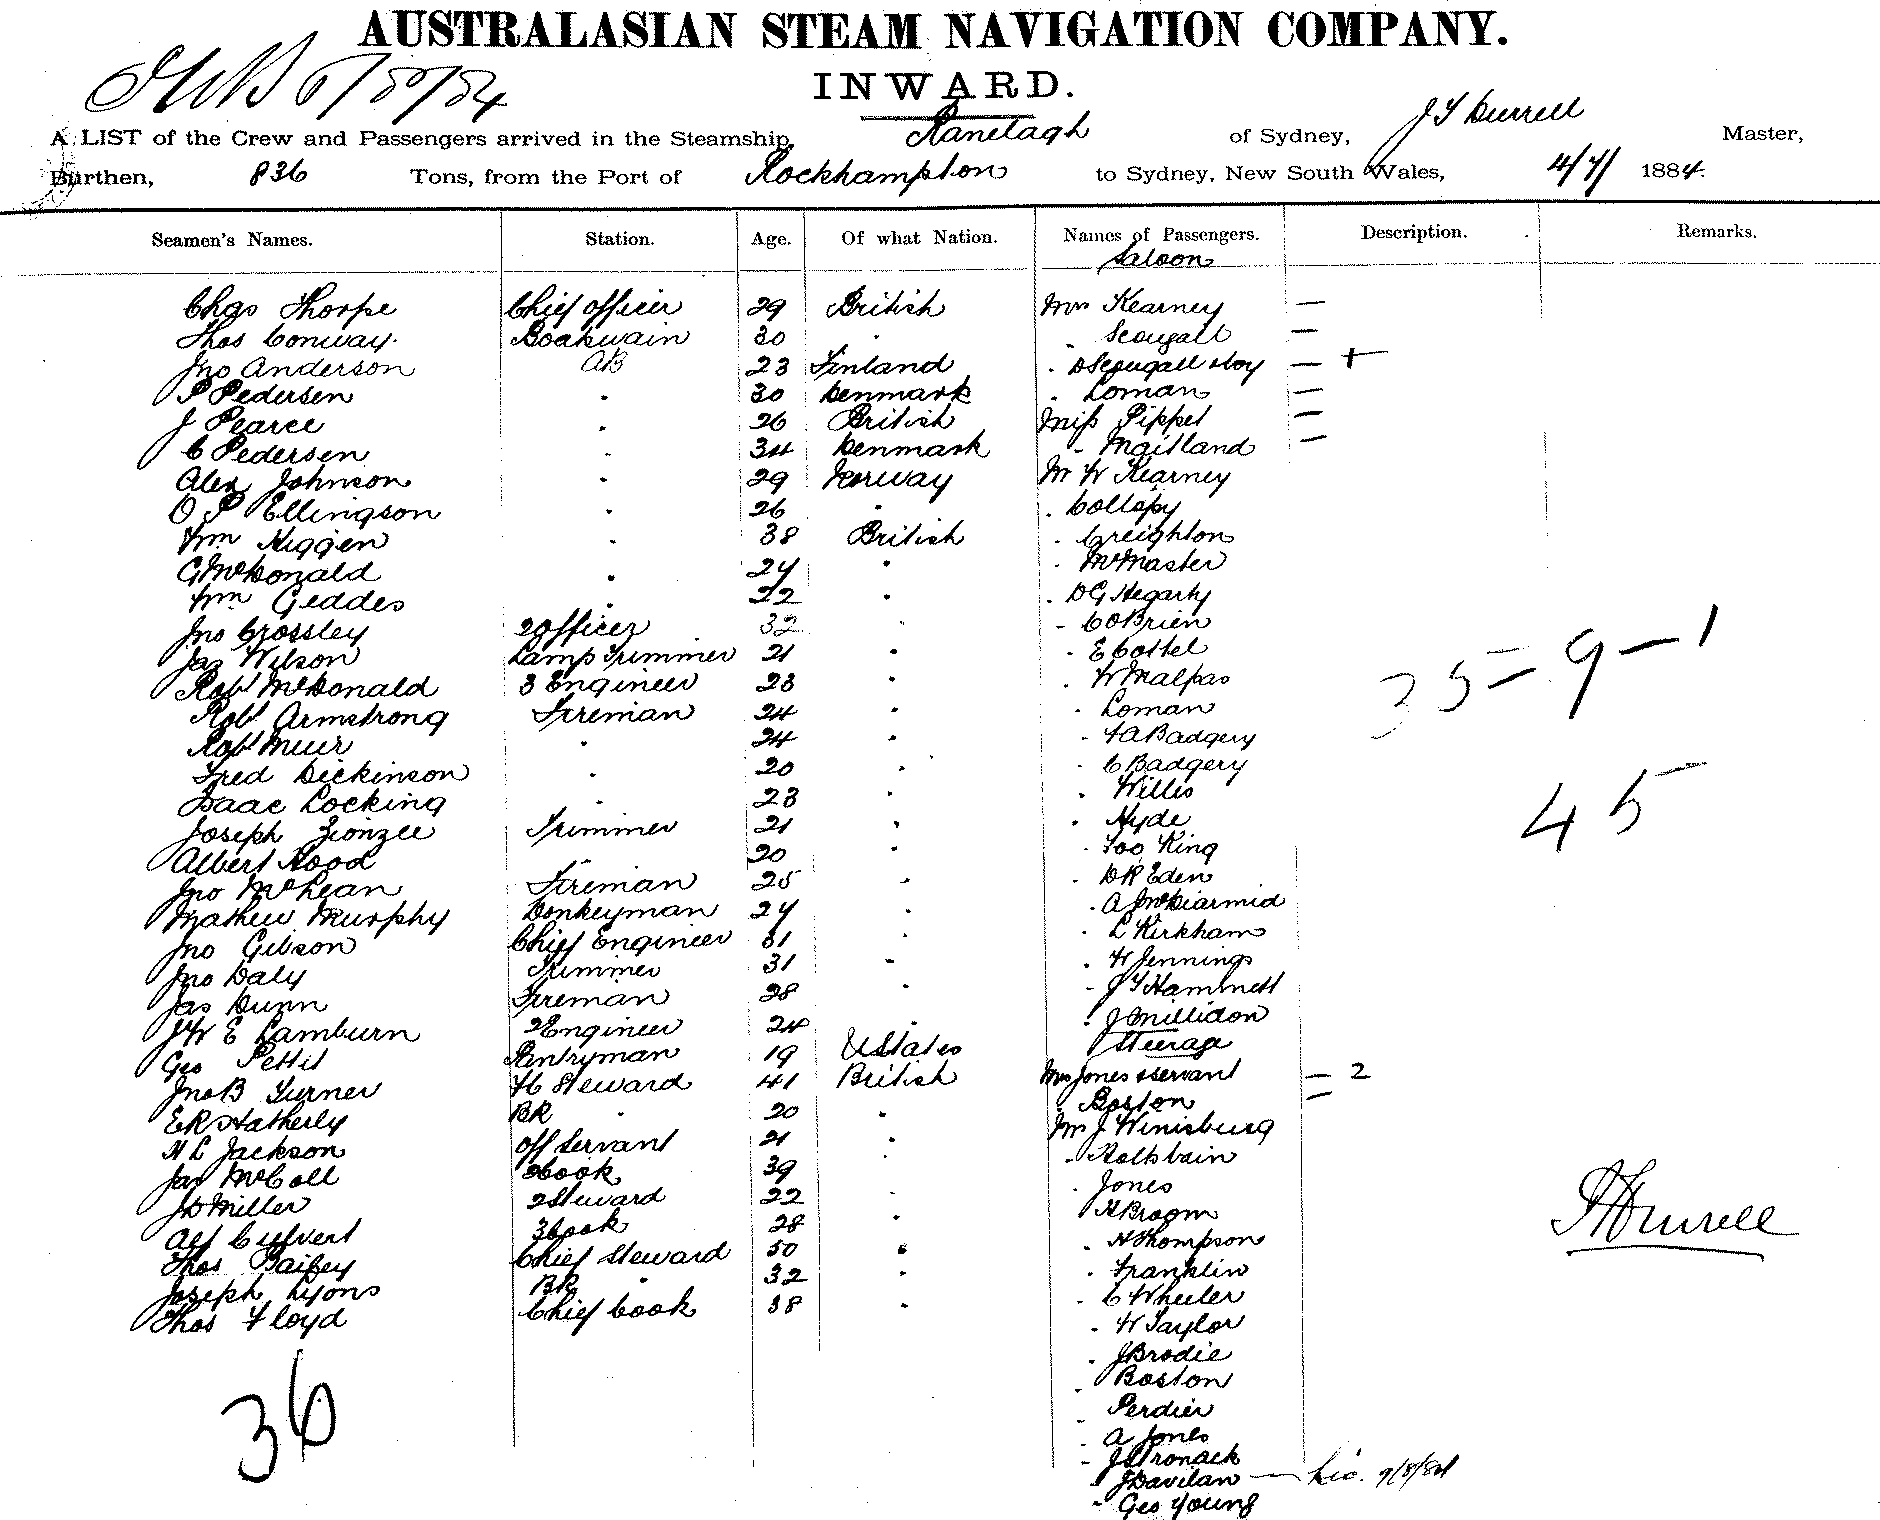 AUSTRALASIAN STEAM NAVIGATION COMPANY.
INWARD.
A LIST of the Crew and Passengers arrived in the Steamship, Ranelagh of Sydney, J Y Durrell Master,
Burthen, 836 Tons, from the Port of Rockhampton to Sydney, New South Wales, 4/7/ 1884.
Seamen's Names. Station. Age. Of what Nation. Names of Passengers. Description. Remarks.
Saloon
Chas Thorpe Chief Officer 29 British Mrs Kearney —
Thos Conway. Boatswain 30 " " Scougall —
Jno Anderson AB 23 Finland " D Scougall & boy — +
P Pedersen " 30 Denmark " Loman —
J Pearce " 26 British Miss Pippet —
C Pedersen " 34 Denmark " Maitland —
Alex Johnson " 29 Norway Mr W Kearney
O P Ellingson " 26 " " Collopy
Wm Higgen " 38 British " Creighton
G McDonald " 24 " " McMaster
Wm Geddes " 22 " " D G Hegarty
Jno Crossley 2 Officer 32 " " C O Brien
Jas Wilson Lamp Trimmer 21 " " E Cottel
Robt McDonald 3 Engineer 23 " " W Malpas
Robt Armstrong Fireman 24 " " Loman
Robt Muir " 24 " " F A Badgery
Fred Dickinson " 20 " " C Badgery
Isaac Locking " 23 " " Willis
Joseph Zionzee Trimmer 21 " " Hyde
Albert Hood " 20 " " Foo King
Jno McLean Fireman 25 " " D R Eden
Mathew Murphy Donkeyman 24 " " A J McDiarmid
Jno Gibson Chief Engineer 31 " " L Kirkham
Jno Daly Trimmer 31 " " W Jennings
Jas Dunn Fireman 28 " " J Y Hammett
J W E Lamburn 2 Engineer 24 " " J Millidon
Steerage
Geo Pettit Pantryman 19 U States
Jno B Turner F C Steward 41 British Mrs Jones & servant — 2
E R Hatherly BR " 20 " " Boston —
H L Jackson Off Servant 21 " Mr J Winisburg
Jas McColl 2 Cook 39 " " Holtsbain
J D Miller 2 Steward 22 " " Jones
Alf Culvert 3 Cook 28 " " H Broom
Thos Bailey Chief Steward 50 " " H Thompson
Joseph Lyons BR " 32 " " Franklin
Thos Floyd Chief Cook 38 " " C Wheeler
" W Taylor
" J Brodie
" Boston
" Perdier
" A Jones
" J Stronack
" J Davilan — Lic. 9/8/84
" Geo Young
36
35 = 9 — 1
45
J Y Durrell